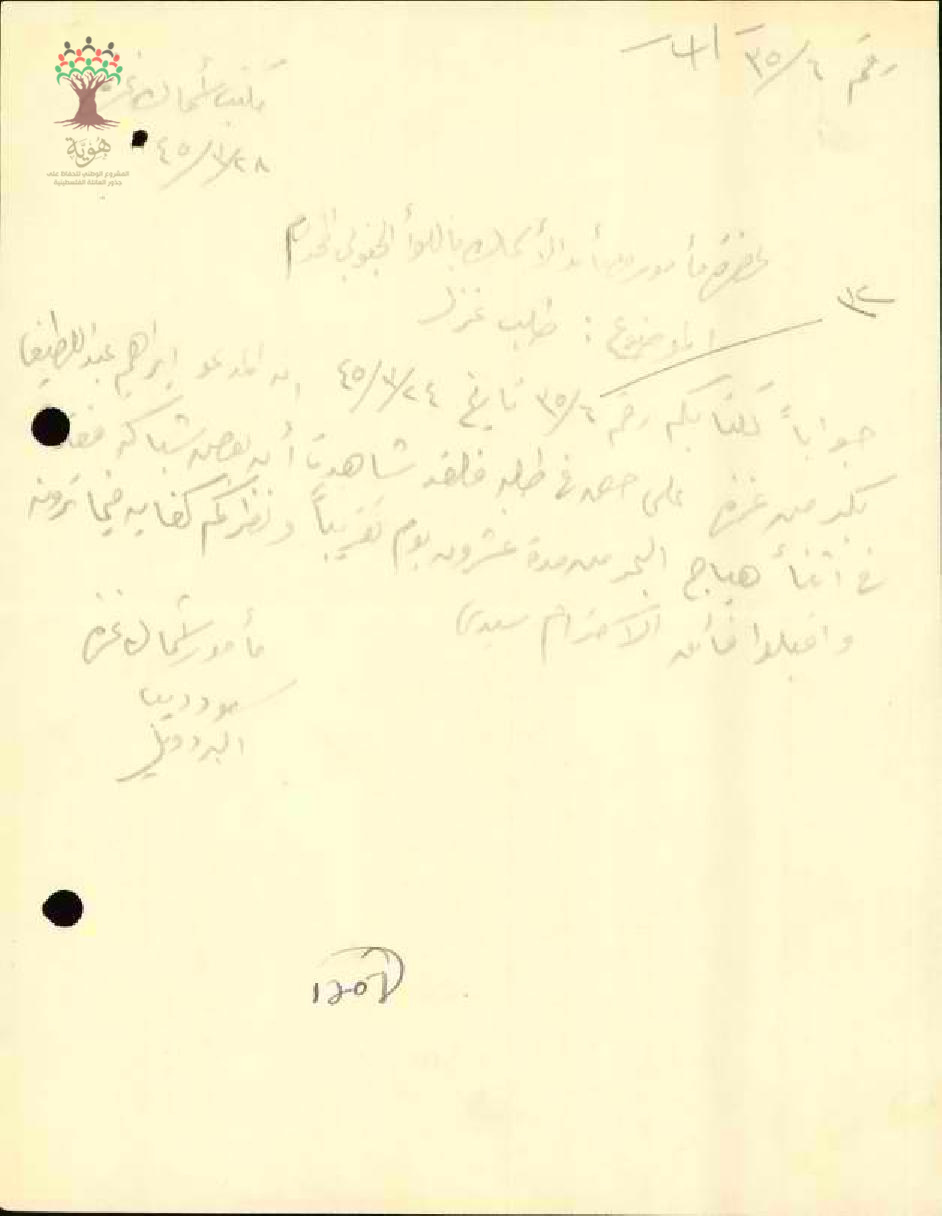 رقم ٣٥/٤
مكتب شمال غزة
٤٥/٣/٢٨
هُوِيَّة
المشروع الوطني للحفاظ على
جذور العائلة الفلسطينية
حضرة مأمور مصائد الأسماك باللواء الجنوبي المحترم
الموضوع : طلب غزل
جواباً لكتابكم رقم ٣٥/٤ تاريخ ٤٥/٣/٢٤ ان المدعو ابراهيم عبد اللطيف
بكر من غزة على حق في طلبه فلقد شاهدت أن بعض شباكه فقد
في أثناء هياج البحر من مدة عشرون يوم تقريباً ونظركم كفاية فيما ترونه
واقبلوا فائق الاحترام سيدي
مأمور شمال غزة
البردويل